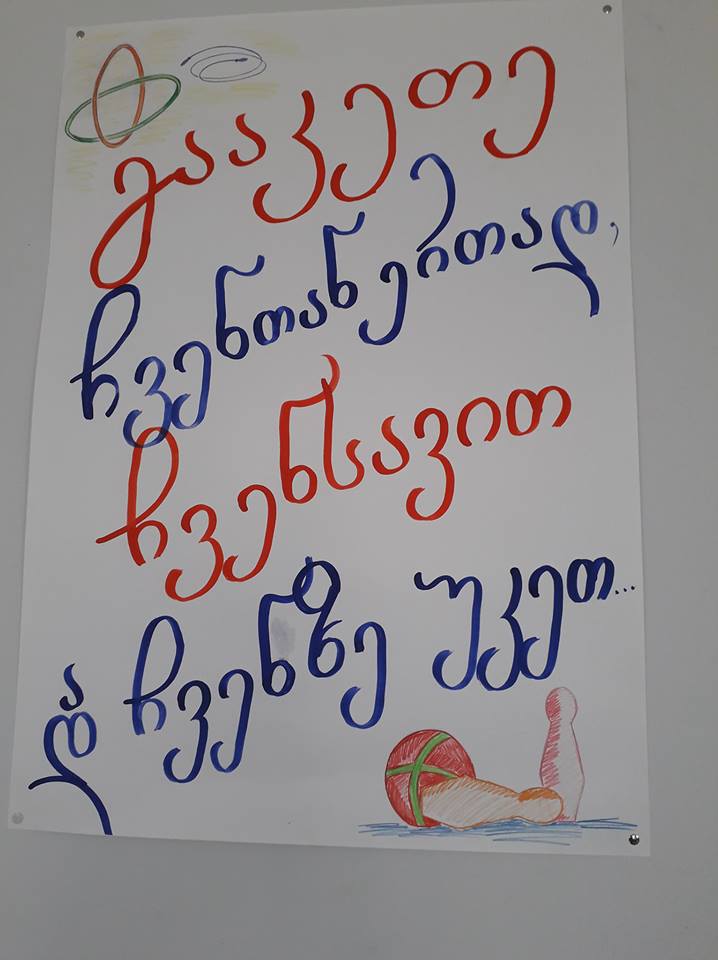 გააკეთე
ჩვენთან ერთად,
ჩვენსავით
და ჩვენზე უკეთ...